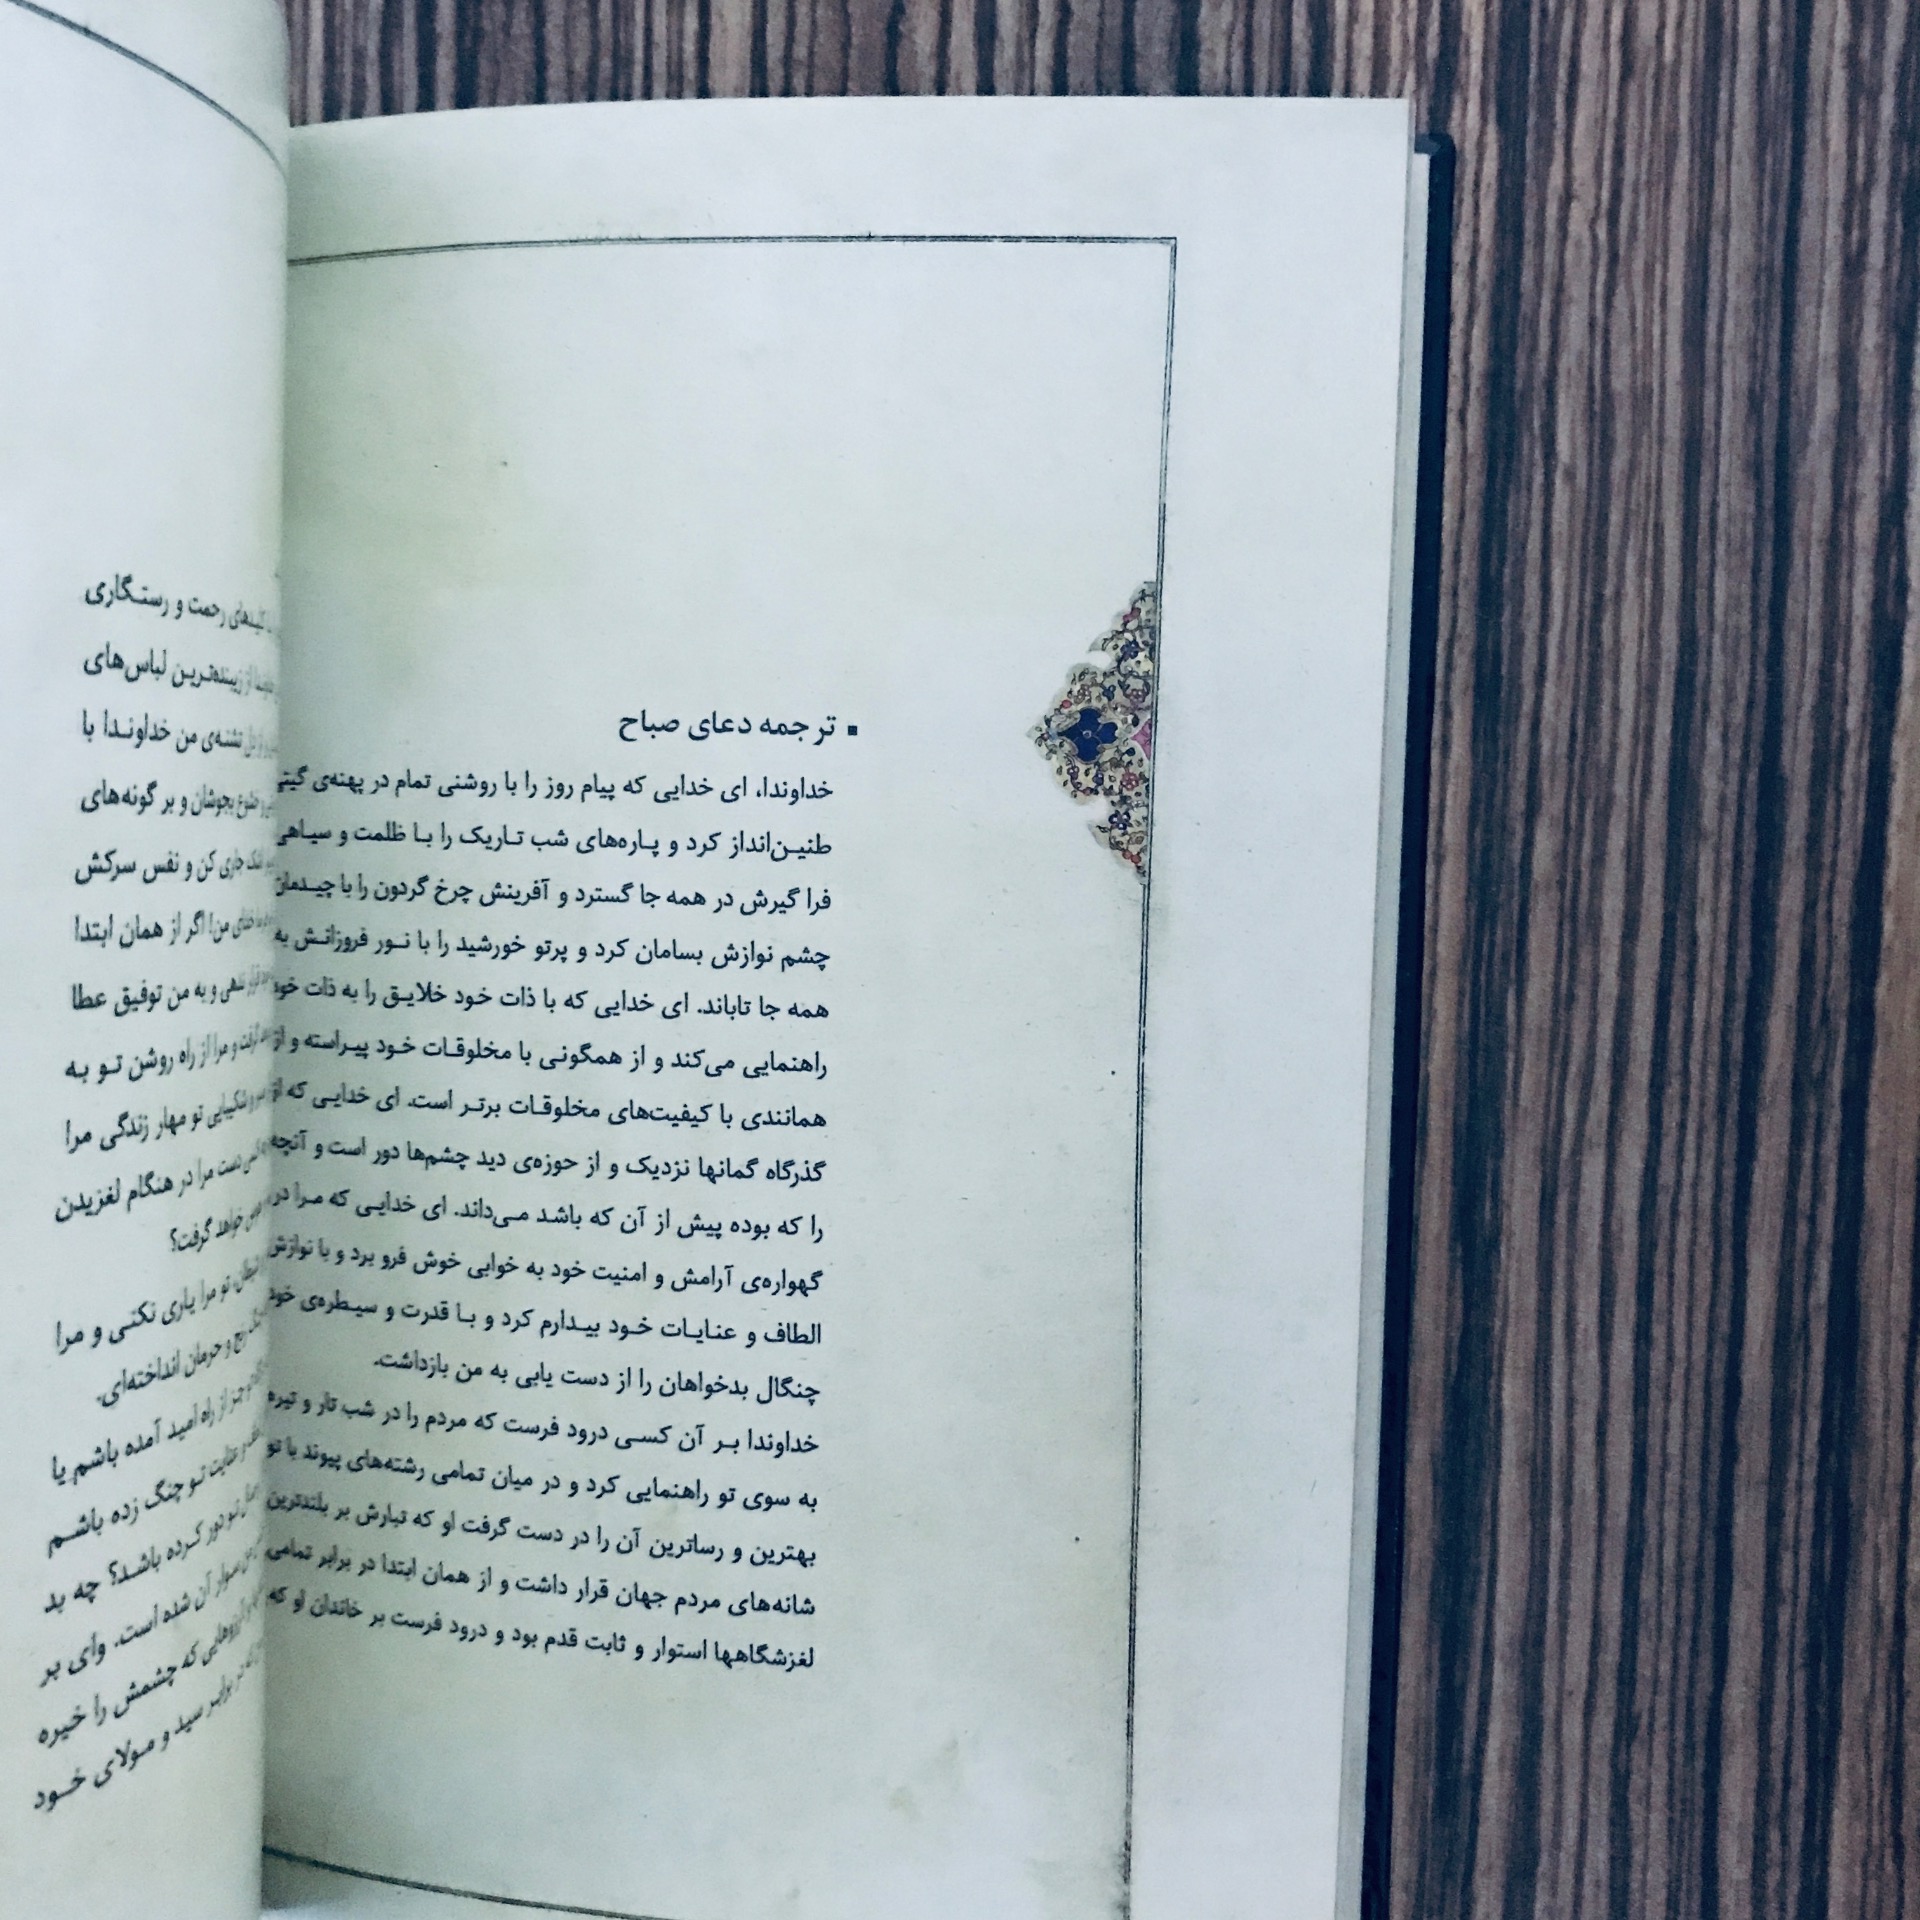 ترجمه دعای صباح
خداوندا، ای خدایی که پیام روز را با روشنی تمام در پهنه‌ی گیتی
طنین‌انداز کرد و پاره‌های شب تاریک را با ظلمت و سیاهی
فرا گیرش در همه جا گسترد و آفرینش چرخ گردون را با چیدمان
چشم نوازش بسامان کرد و پرتو خورشید را با نور فروزانش به
همه جا تاباند. ای خدایی که با ذات خود خلایق را به ذات خود
راهنمایی می‌کند و از همگونی با مخلوقات خود پیراسته و از
همانندی با کیفیت‌های مخلوقات برتر است. ای خدایی که از
گذرگاه گمانها نزدیک و از حوزه‌ی دید چشم‌ها دور است و آنچه
را که بوده پیش از آن که باشد می‌داند. ای خدایی که مرا در
گهواره‌ی آرامش و امنیت خود به خوابی خوش فرو برد و با نوازش
الطاف و عنایات خود بیدارم کرد و با قدرت و سیطره‌ی خود
چنگال بدخواهان را از دست یابی به من بازداشت.
خداوندا بر آن کسی درود فرست که مردم را در شب تار و تیره
به سوی تو راهنمایی کرد و در میان تمامی رشته‌های پیوند با تو
بهترین و رساترین آن را در دست گرفت او که تبارش بر بلندترین
شانه‌های مردم جهان قرار داشت و از همان ابتدا در برابر تمامی
لغزشگاهها استوار و ثابت قدم بود و درود فرست بر خاندان او که
کلیدهای رحمت و رستگاری
از زیبنده‌ترین لباس‌های
تشنه‌ی من خداوندا با
خشوع بجوشان و بر گونه‌های
اشک جاری کن و نفس سرکش
خدای من! اگر از همان ابتدا
قرار ندهی و به من توفیق عطا
گرفت و مرا از راه روشن تو به
شکیبایی تو مهار زندگی مرا
کسی دست مرا در هنگام لغزیدن
خواهد گرفت؟
شیطان، تو مرا یاری نکنی و مرا
رنج و حرمان انداخته‌ای.
جز از راه امید آمده باشم یا
عنایت تو چنگ زده باشم
تو دور کرده باشد؟ چه بد
سوار آن شده است. وای بر
آرزوهایی که چشمش را خیره
در برابر سید و مولای خود